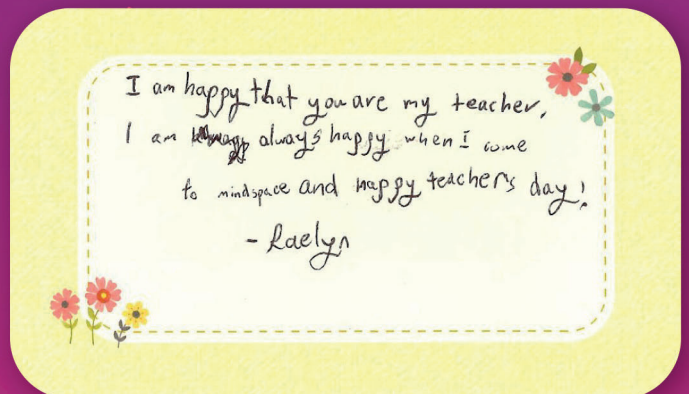 I am happy that you are my teacher.
I am always happy when I come
to mindspace and happy teachers day!
- Raelyn